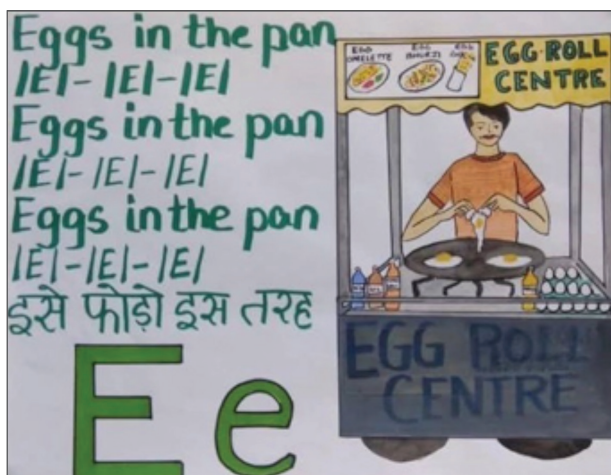 Eggs in the pan
|E|- |E|- |E|
Eggs in the pan
|E|- |E|- |E|
Eggs in the pan
|E|-|E|- |E|
इसे फोड़ो इस तरह
E e
EGG
OMELETTE
EGG
BHURJI
EGG
EGG ROLL
CENTRE
EGG ROLL
CENTRE